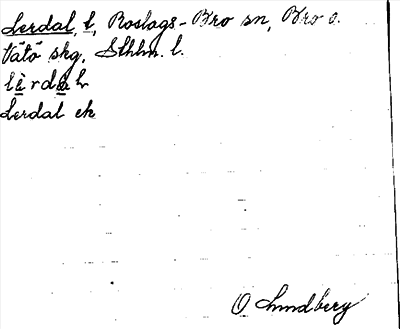 Lerdal, t, Roslags-Bro sn, Bro o.
Vätö skg, Sthlm. l.
lèrdaḷ
Lerdal ek
O Lundberg